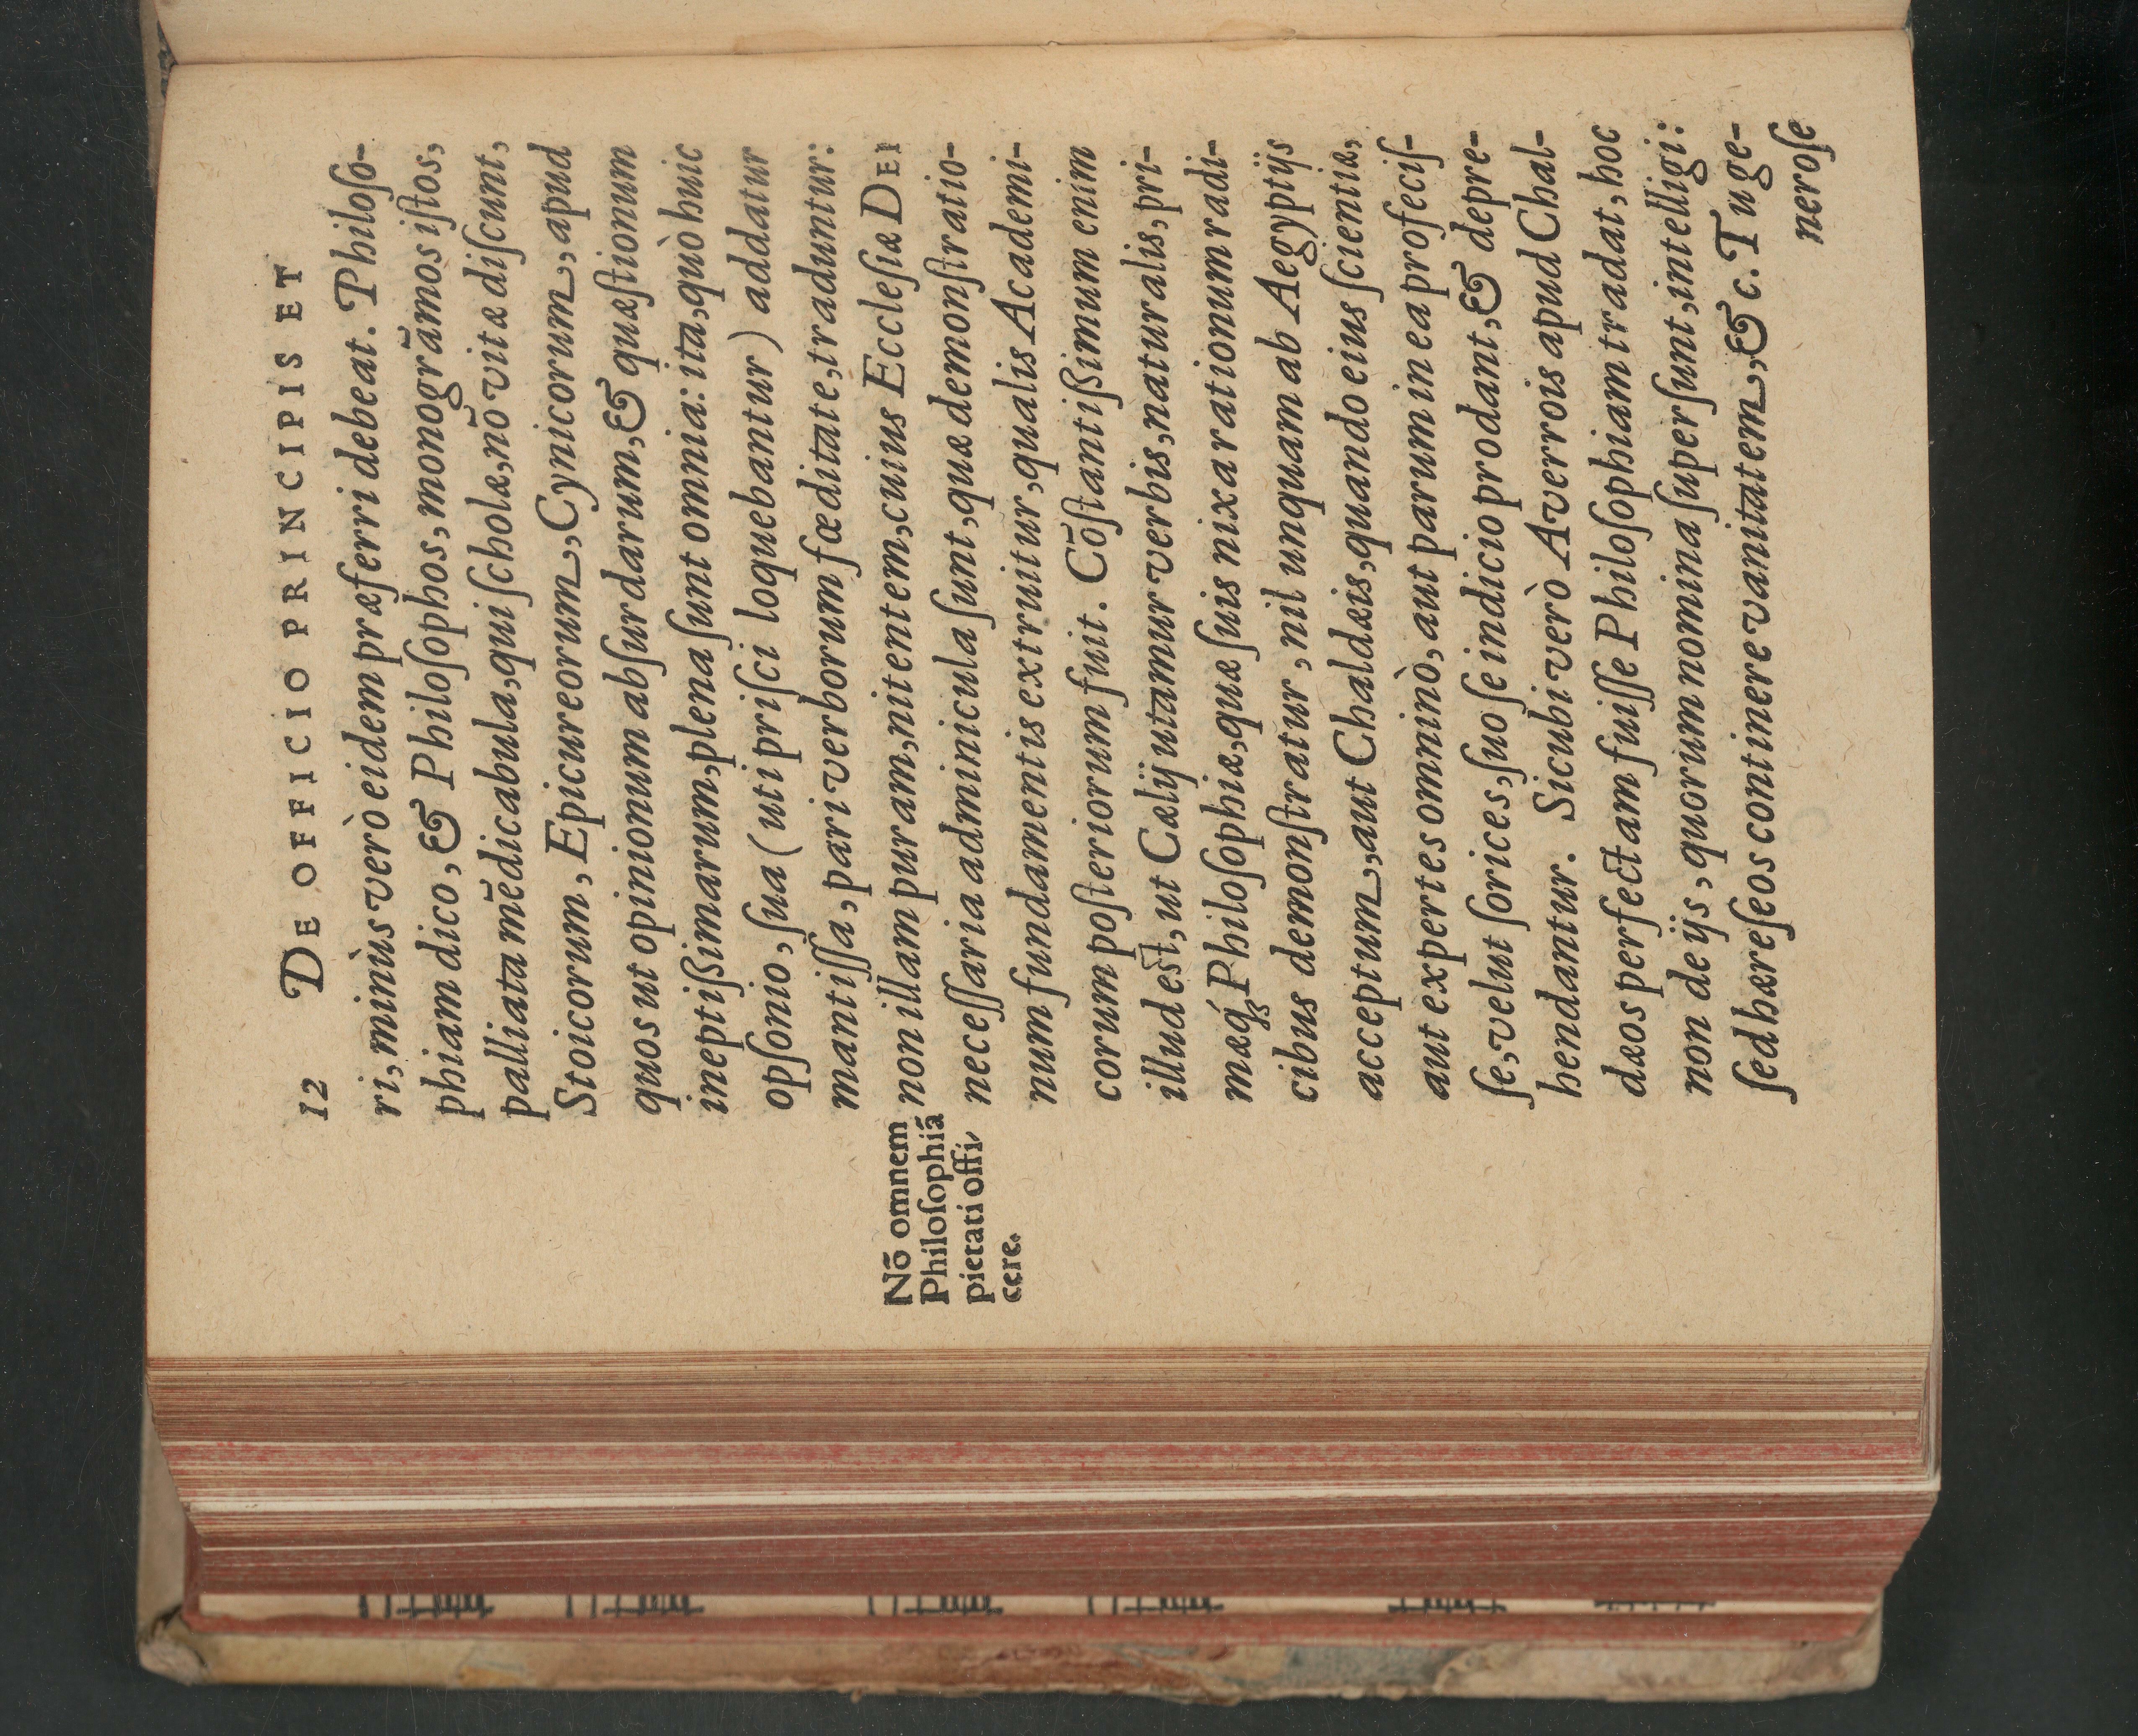 12 DE OFFICIO PRINCIPIS ET
ri, minùs verò eidem præferri debeat. Philoſo-
phiam dico, & Philoſophos, monogrãmos iſtos,
palliata mẽdicabula, qui ſcholæ, nõ vitæ diſcunt,
Stoicorum, Epicureorum, Cynicorum, apud
quos ut opinionum abſurdarum, & quæſtionum
ineptiſsimarum, plena ſunt omnia: ita, quò huic
opſonio, ſua (uti priſci loquebantur) addatur
mantiſſa, pari verborum fœditate, traduntur:
non illam puram, nitentem, cuius Eccleſiæ DEI
neceſſaria adminicula ſunt, quæ demonſtratio-
num fundamentis extruitur, qualis Academi-
corum poſteriorum fuit. Cõſtantiſsimum enim
illud eſt, ut Cælij utamur verbis, naturalis, pri-
mæq́ꝫ Philoſophiæ, quæ ſuis nixa rationum radi-
cibus demonſtratur, nil unquam ab Aegyptijs
acceptum, aut Chaldæis, quando eius ſcientiæ,
aut expertes omninò, aut parum in ea profeciſ-
ſe, velut ſorices, ſuo ſe indicio prodant, & depre-
hendantur. Sicubi verò Averrois apud Chal-
dæos perfectam fuiſſe Philoſophiam tradat, hoc
non de ijs, quorum nomina ſuperſunt, intelligi:
ſed hæreſeos continere vanitatem, & c. Tu ge-
neroſe
Nõ omnem
Philoſophiã
pietati offi-
cere.